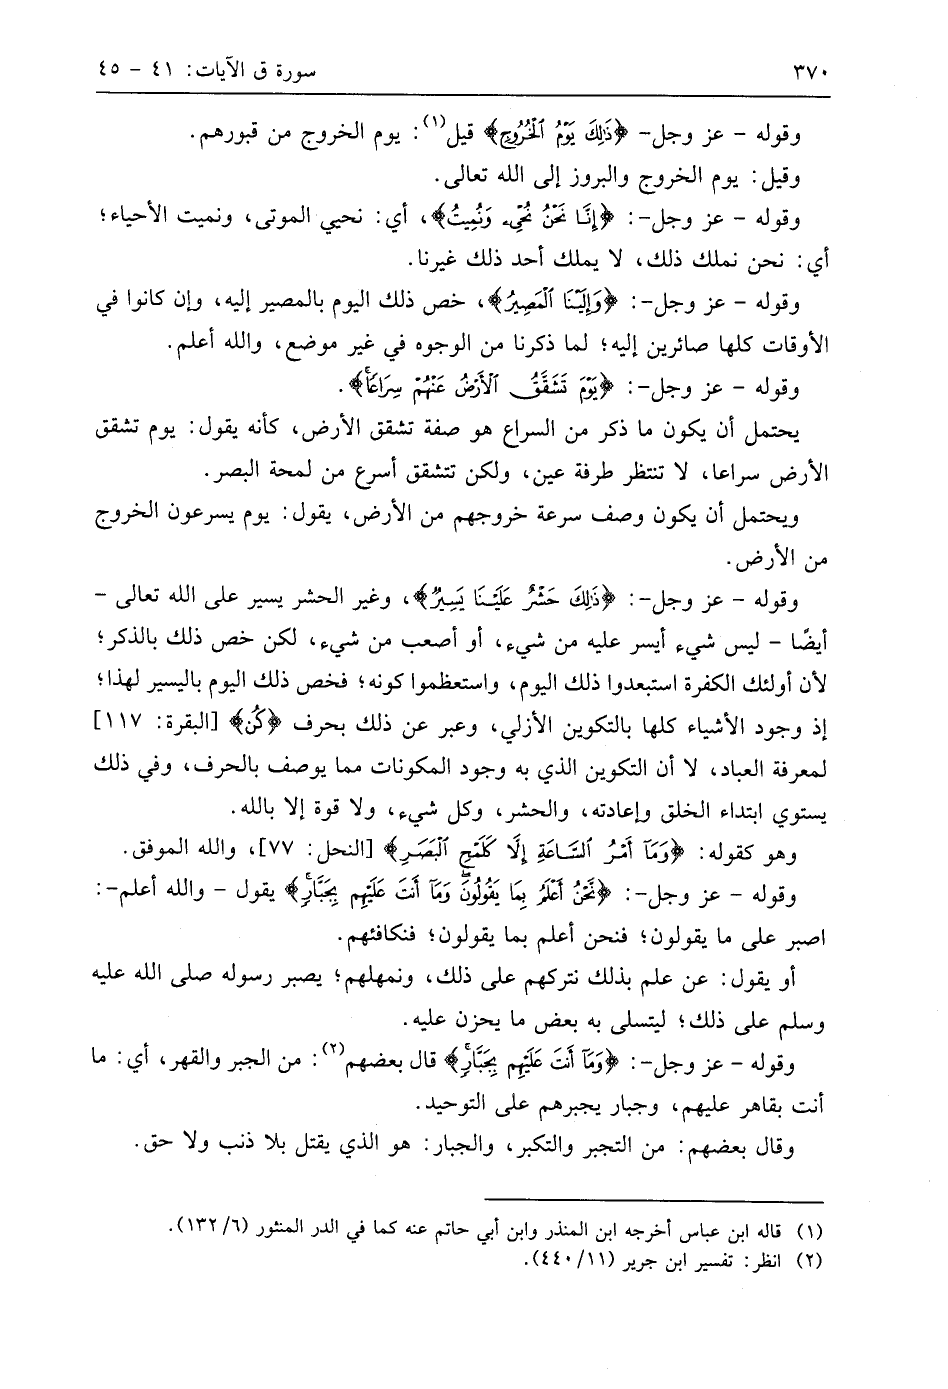 ٣٧٠ سورة ق الآيات: ٤١ - ٤٥
وقوله - عز وجل- ﴿ذَٰلِكَ يَوْمُ ٱلْخُرُوجِ﴾ قيل(١): يوم الخروج من قبورهم.
وقيل: يوم الخروج والبروز إلى الله تعالى.
وقوله - عز وجل-: ﴿إِنَّا نَحْنُ نُحْيِۦ وَنُمِيتُ﴾، أي: نحيي الموتى، ونميت الأحياء؛
أي: نحن نملك ذلك، لا يملك أحد ذلك غيرنا.
وقوله - عز وجل-: ﴿وَإِلَيْنَا ٱلْمَصِيرُ﴾، خص ذلك اليوم بالمصير إليه، وإن كانوا في
الأوقات كلها صائرين إليه؛ لما ذكرنا من الوجوه في غير موضع، والله أعلم.
وقوله - عز وجل-: ﴿يَوْمَ تَشَقَّقُ ٱلْأَرْضُ عَنْهُمْ سِرَاعًا﴾.
يحتمل أن يكون ما ذكر من السراع هو صفة تشقق الأرض، كأنه يقول: يوم تشقق
الأرض سراعا، لا تنتظر طرفة عين، ولكن تتشقق أسرع من لمحة البصر.
ويحتمل أن يكون وصف سرعة خروجهم من الأرض، يقول: يوم يسرعون الخروج
من الأرض.
وقوله - عز وجل-: ﴿ذَٰلِكَ حَشْرٌ عَلَيْنَا يَسِيرٌ﴾، وغير الحشر يسير على الله تعالى -
أيضًا - ليس شيء أيسر عليه من شيء، أو أصعب من شيء، لكن خص ذلك بالذكر؛
لأن أولئك الكفرة استبعدوا ذلك اليوم، واستعظموا كونه؛ فخص ذلك اليوم باليسير لهذا؛
إذ وجود الأشياء كلها بالتكوين الأزلي، وعبر عن ذلك بحرف ﴿كُن﴾ [البقرة: ١١٧]
لمعرفة العباد، لا أن التكوين الذي به وجود المكونات مما يوصف بالحرف، وفي ذلك
يستوي ابتداء الخلق وإعادته، والحشر، وكل شيء، ولا قوة إلا بالله.
وهو كقوله: ﴿وَمَآ أَمْرُ ٱلسَّاعَةِ إِلَّا كَلَمْحِ ٱلْبَصَرِ﴾ [النحل: ٧٧]، والله الموفق.
وقوله - عز وجل-: ﴿نَّحْنُ أَعْلَمُ بِمَا يَقُولُونَ ۖ وَمَآ أَنتَ عَلَيْهِم بِجَبَّارٍ﴾ يقول - والله أعلم-:
اصبر على ما يقولون؛ فنحن أعلم بما يقولون؛ فنكافئهم.
أو يقول: عن علم بذلك نتركهم على ذلك، ونمهلهم؛ يصبر رسوله صلى الله عليه
وسلم على ذلك؛ ليتسلى به بعض ما يحزن عليه.
وقوله - عز وجل-: ﴿وَمَآ أَنتَ عَلَيْهِم بِجَبَّارٍ﴾ قال بعضهم(٢): من الجبر والقهر، أي: ما
أنت بقاهر عليهم، وجبار يجبرهم على التوحيد.
وقال بعضهم: من التجبر والتكبر، والجبار: هو الذي يقتل بلا ذنب ولا حق.
(١) قاله ابن عباس أخرجه ابن المنذر وابن أبي حاتم عنه كما في الدر المنثور (١٣٢/٦).
(٢) انظر: تفسير ابن جرير (٤٤٠/١١).